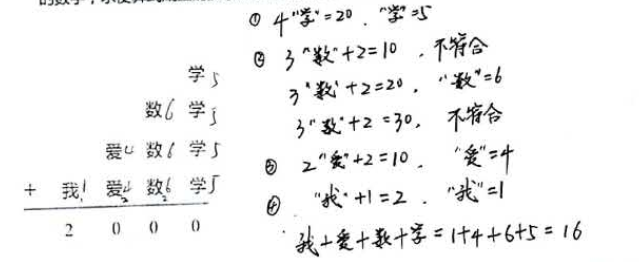 学5
数6 学5
爱4 数6 学5
+ 我1 爱4 数6 学5
2 0 0 0
① 4"学"=20 . "学"=5
② 3"数"+2=10 . 不符合
3"数"+2=20 . "数"=6
3"数"+2=30 . 不符合
③ 2"爱"+2=10 . "爱"=4
④ "我"+1=2 . "我"=1
我+爱+数+学=1+4+6+5=16